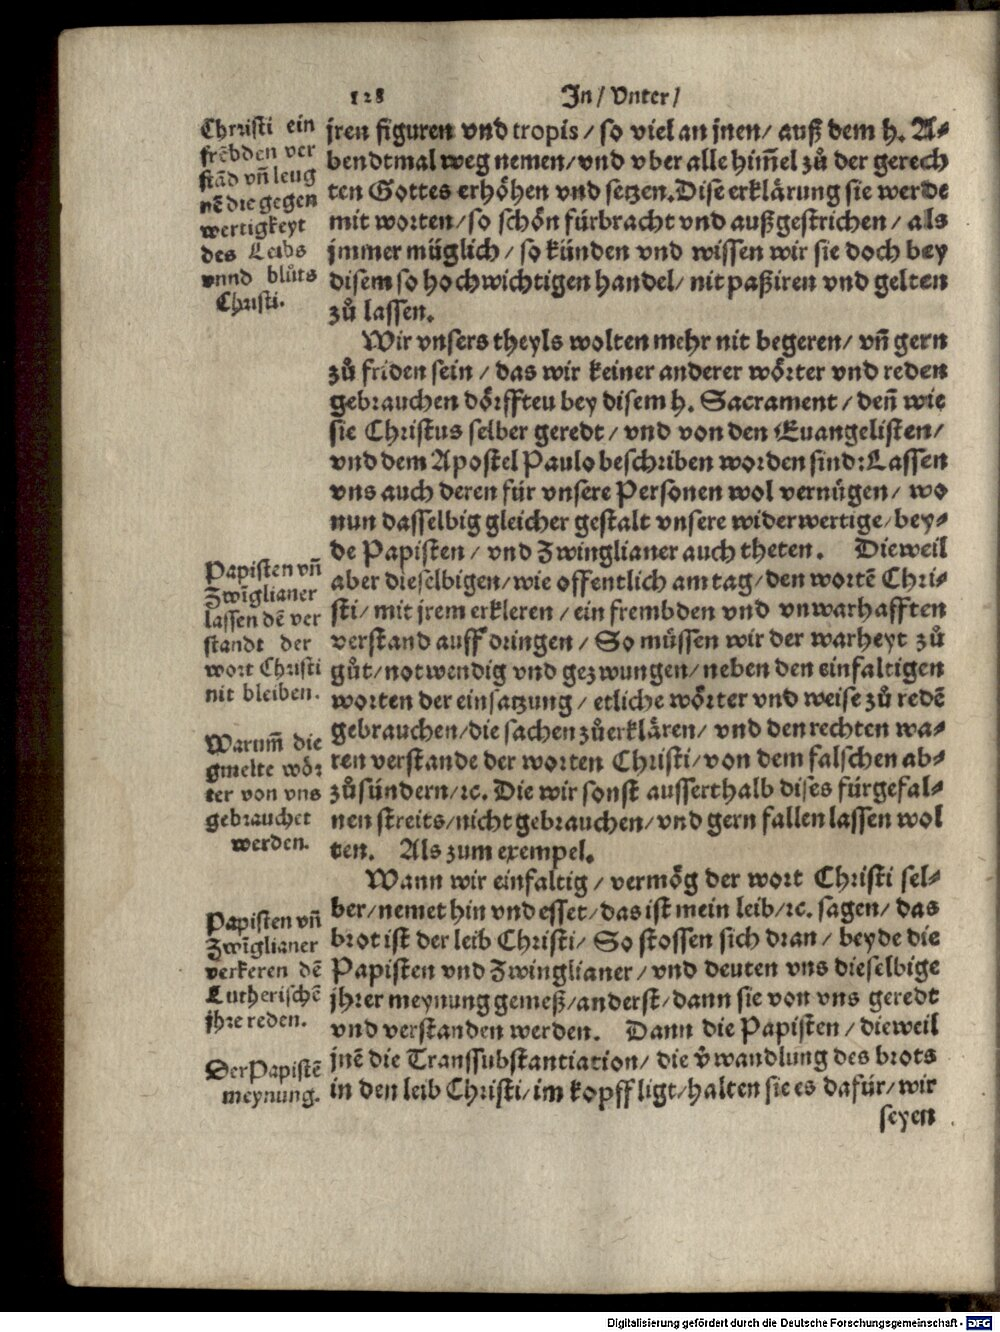 128
In/ Vnter/
Christi ein
frẽbden ver
stãd vñ leug
nẽ die gegen
wertigkeyt
des Leibs
vnnd blůts
Christi.
jren figuren vnd tropis/ so viel an jnen/ auß dem h. A-
bendtmal weg nemen/ vnd vber alle him̃el zů der gerech
ten Gottes erhöhen vnd setzen. Dise erklärung sie werde
mit worten/ so schön fürbracht vnd außgestrichen/ als
jmmer müglich/ so künden vnd wissen wir sie doch bey
disem so hochwichtigen handel/ nit paßiren vnd gelten
zů lassen.
Wir vnsers theyls wolten mehr nit begeren/ vñ gern
zů friden sein/ das wir keiner anderer wörter vnd reden
gebrauchen dörffteu bey disem h. Sacrament/ den̄ wie
sie Christus selber geredt/ vnd von den Euangelisten/
vnd dem Apostel Paulo beschriben worden sind: Lassen
vns auch deren für vnsere Personen wol vernügen/ wo
nun dasselbig gleicher gestalt vnsere widerwertige/ bey-
de Papisten/ vnd Zwinglianer auch theten. Dieweil
aber dieselbigen/ wie offentlich am tag/ den wortẽ Chri-
sti/ mit jrem erkleren/ ein frembden vnd vnwarhafften
verstand auff dringen/ So müssen wir der warheyt zů
gůt/ notwendig vnd gezwungen/ neben den einfaltigen
worten der einsatzung/ etliche wörter vnd weise zů redẽ
gebrauchen/ die sachen zů erklären/ vnd den rechten wa-
ren verstande der worten Christi/ von dem falschen ab-
zůsündern/ ꝛc. Die wir sonst ausserthalb dises fürgefal-
nen streits/ nicht gebrauchen/ vnd gern fallen lassen wol
ten. Als zum exempel.
Papisten vñ
Zwĩglianer
lassen dẽ ver
standt der
wort Christi
nit bleiben.
Warum̃ die
gmelte wör
ter von vns
gebrauchet
werden.
Wann wir einfaltig/ vermög der wort Christi sel-
ber/ nemet hin vnd esset/ das ist mein leib/ ꝛc. sagen/ das
brot ist der leib Christi/ So stossen sich dran/ beyde die
Papisten vnd Zwinglianer/ vnd deuten vns dieselbige
jhrer meynung gemeß/ anderst/ dann sie von vns geredt
vnd verstanden werden. Dann die Papisten/ dieweil
jnẽ die Transsubstantiation/ die v̊wandlung des brots
in den leib Christi/ im kopff ligt/ halten sie es dafür/ wir
Papisten vñ
Zwĩglianer
verkeren dẽ
Lutherischẽ
jhre reden.
Der Papistẽ
meynung.
seyen
Digitalisierung gefördert durch die Deutsche Forschungsgemeinschaft - DFG